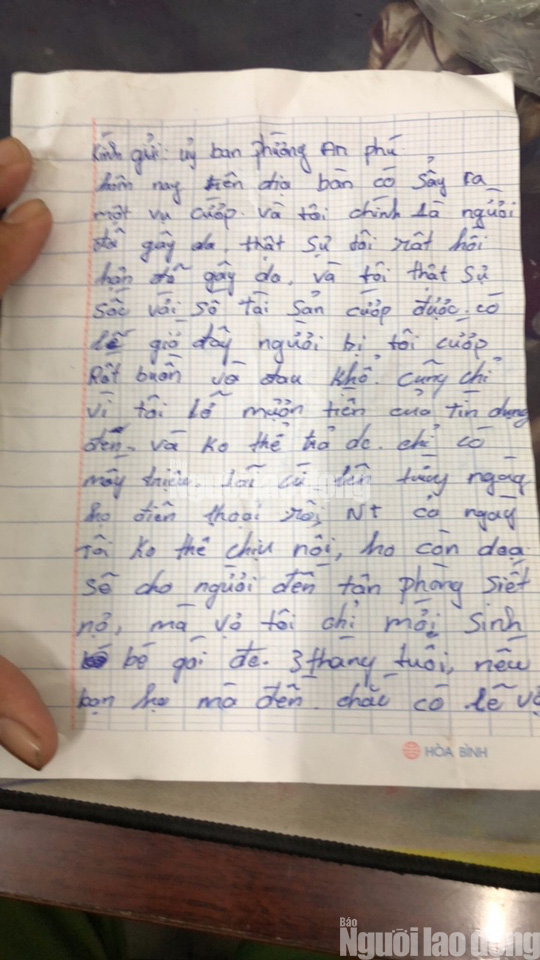 Kính gửi: uỷ ban phường An phú
hôm nay trên địa bàn có sảy ra
một vụ cướp. và tôi chính là người
đã gây da. thật sự tôi rất hối
hận đã gây da, và tôi thật sự
sốc với số tài sản cướp được. có
lẽ giờ đây người bị tôi cướp
Rất buồn và đau khổ. cũng chỉ
vì tôi lỡ mượn tiền của tín dụng
đen. và ko thể trả dc. chỉ có
mấy triệu lãi cứ lên từng ngày
họ điện thoại rồi NT cả ngày
tôi ko thể chịu nổi, họ còn doạ
sẽ cho người đến tận phòng siết
nợ, mà vợ tôi chỉ mới sinh
bé gái đc. 3 tháng tuổi, nếu
bọn họ mà đến. chắc có lẽ vợ
HÒA BÌNH
Báo
Người lao động